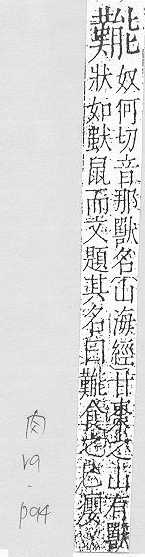 奴何切音那獸名山海經甘棗之山有獸
狀如鼠而文題其名曰食之已癭
肉
19
.
p094